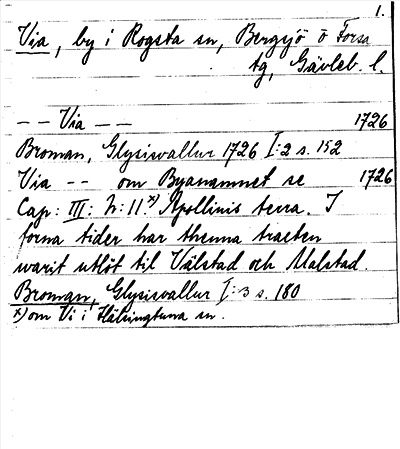 1.
Via, by i Rogsta sn, Bergsjö o Forsa
tg, Gävleb. l.
-- Via -- 1726
Broman, Glysisvallur 1726 I:2 s. 152
Via -- om Byanamnet se 1726
Cap: III: N: 11.x) Apollinis terra. I
forna tider har thenna tracten
warit utlöt til Välstad och Malstad.
Broman, Glysisvallur I:3 s. 180
x) om Vi i Hälsingtuna sn.